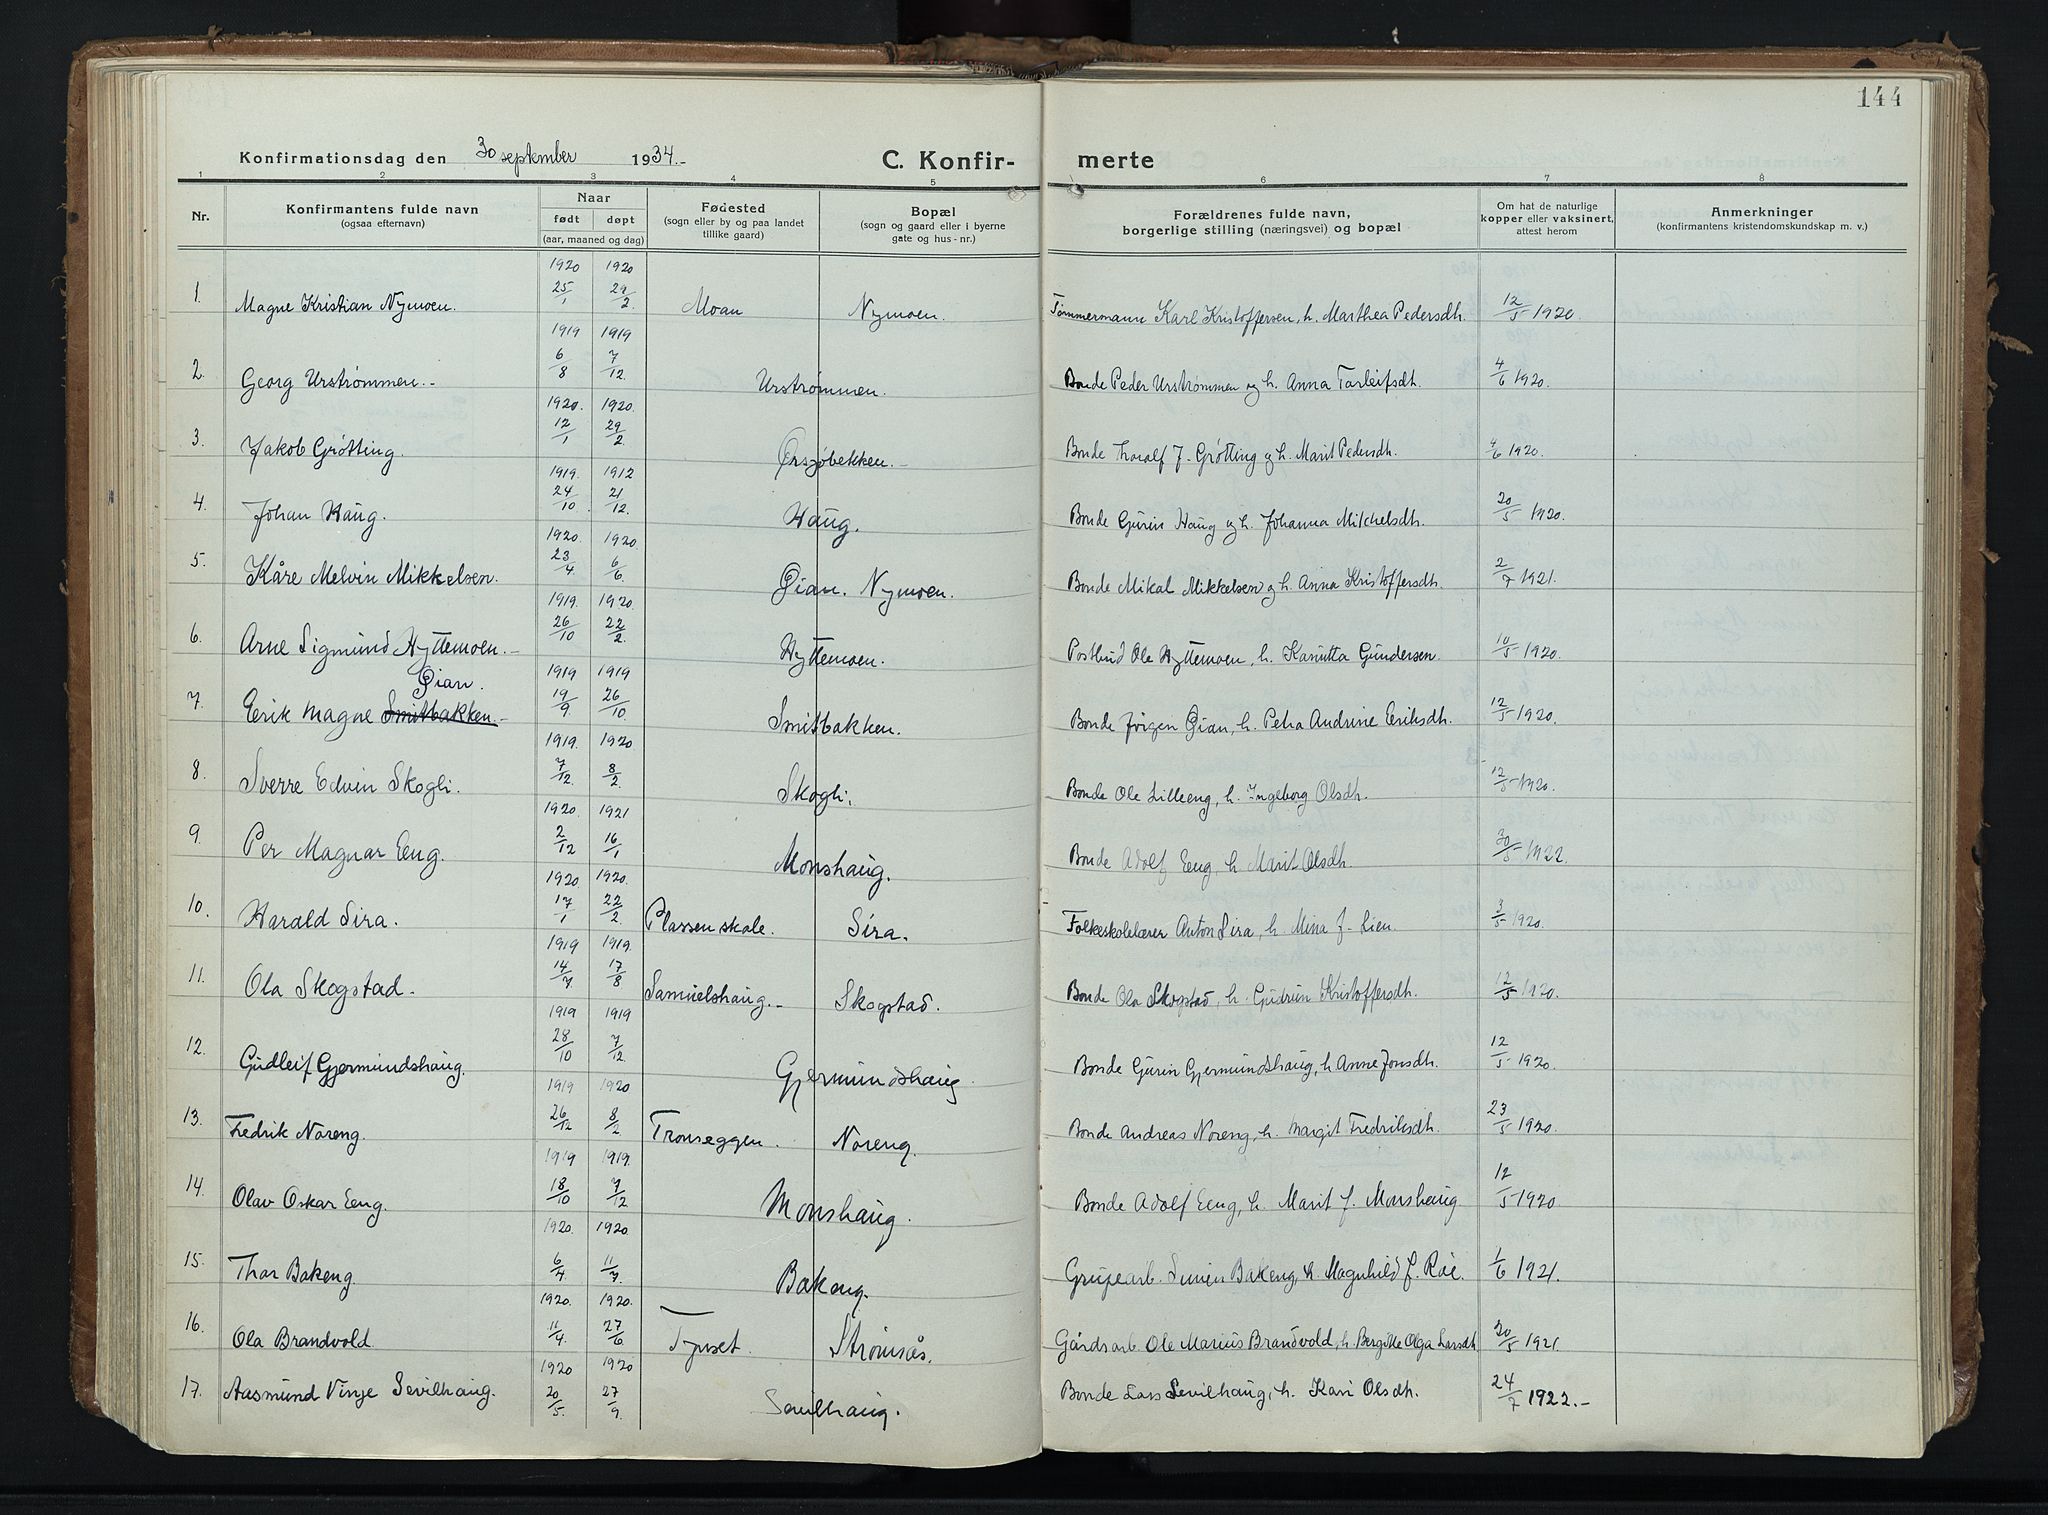 144
Konfirmationsdag den 30 september 1934.-
C. Konfir- merte
1 2 3 4 5 6 7 8
Nr.
Konfirmantens fulde navn
(ogsaa efternavn)
Naar
født døpt
(aar, maaned og dag)
Fødested
(sogn eller by og paa landet
tillike gaard)
Bopæl
(sogn og gaard eller i byerne
gate og hus-nr.)
Forældrenes fulde navn,
borgerlige stilling (næringsvei) og bopæl
Om hat de naturlige
kopper eller vaksinert,
attest herom
Anmerkninger
(konfirmantens kristendomskundskap m. v.)
1920 1920
1. Magne Kristian Nymoen. 25/1 29/2 Moan Nymoen. Tømmermann Karl Kristoffersen, h. Marthea Pedersdh. 12/5 1920.
1919 1919
2. Georg Urstrømmen.- 6/8 7/12 Urstrømmen. Bonde Peder Urstrømmen og h. Anna Tarleifsdh. 4/6 1920.
1920. 1920.
3. Jakob Grøtting. 12/1 29/2 Ørsjøbekken.- Bonde Thoralf J. Grøtting og h. Marit Pedersdh. 4/6 1920.
1919. 1912
4. Johan Haug. 24/10 21/12. Haug. Bonde Gurin Haug og h. Johanna Mikkelsdh. 20/5 1920.
1920. 1920.
5. Kåre Melvin Mikkelsen. 23/4 6/6. Øian. Nymoen. Bonde Mikal Mikkelsen og h. Anna Kristoffersdh. 2/7 1921.
1919. 1920.
6. Arne Sigmund Hyttemoen.- 26/10 22/2. Hyttemoen. Postbud Ole Hyttemoen, h. Gundersen. 10/5 1920.
Øian. 1919 1919
7. Eerik Magne Smitbakken.- 19/9. 26/10. Smitbakken. Bonde Jørgen Øian, h. Petra Andrine Eeriksdh. 12/5 1920.
1919. 1920
8. Sverre Edvin Skogli. 7/12. 8/2. Skogli. Bonde Ole Lilleeng, h. Ingeborg Olsdh. 12/5 1920.
1920. 1921
9. Per Magnar Eeng. 2/12 16/1 Monshaug. Bonde Adolf Eeng, h Marit Olsdh. 30/5 1922.
1920. 1920.
10. Harald Sira. 17/1 22/2 Plassen skole. Sira. Folkeskolelærer Anton Sira, h. Mina f. Lien. 3/5 1920.
1919 1919.
11. Ola Skogstad. 14/7 17/8 Samuelshaug.- Skogstad. Bonde Ola Skogstad, h. Gudrun Kristoffersdh. 12/5 1920.
1919 1919
12. Gudleif Gjermundshaug. 28/10 7/12 Gjermundshaug. Bonde Gurin Gjermundshaug, h Anne Jonsdh. 12/5 1920.
1919 1920
13. Fredrik Noreng. 26/12 8/2 Tronseggen. Noreng. Bonde Andreas Noreng, h. Margit Fredriksdh. 23/5 1920.
1919 1919.
14. Olav Oskar Eeng. 18/10 7/12 Monshaug. Bonde Adolf Eeng, h. Marit f. Monshaug 12/5 1920.
1920. 1920.
15. Thor Bakeng. 6/4 11/7. Bakeng. Grubearb. Bakeng, h. Magnhild f. Røe. 1/6 1921.
1920. 1920.
16. Ola Brandvold. 11/4. 27/6 Tynset. Strømsås. Gårdsarb. Ole Marius Brandvold, h. Bergitte Olga Larsdh 20/5 1921.
1920 1920
17. Aasmund Vinje Sevilhaug. 20/5. 27/9. Sevilhaug. Bonde Lars Sevilhaug, h. Kari Olsdh. 24/7 1922.-